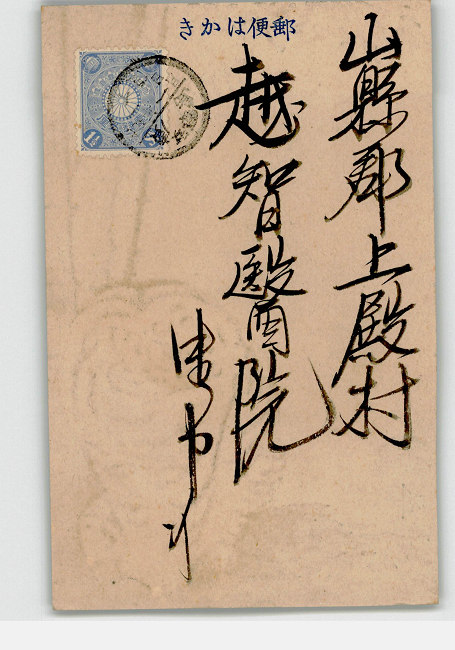 きかは便郵
山縣郡上殿村
越智醫院
1½